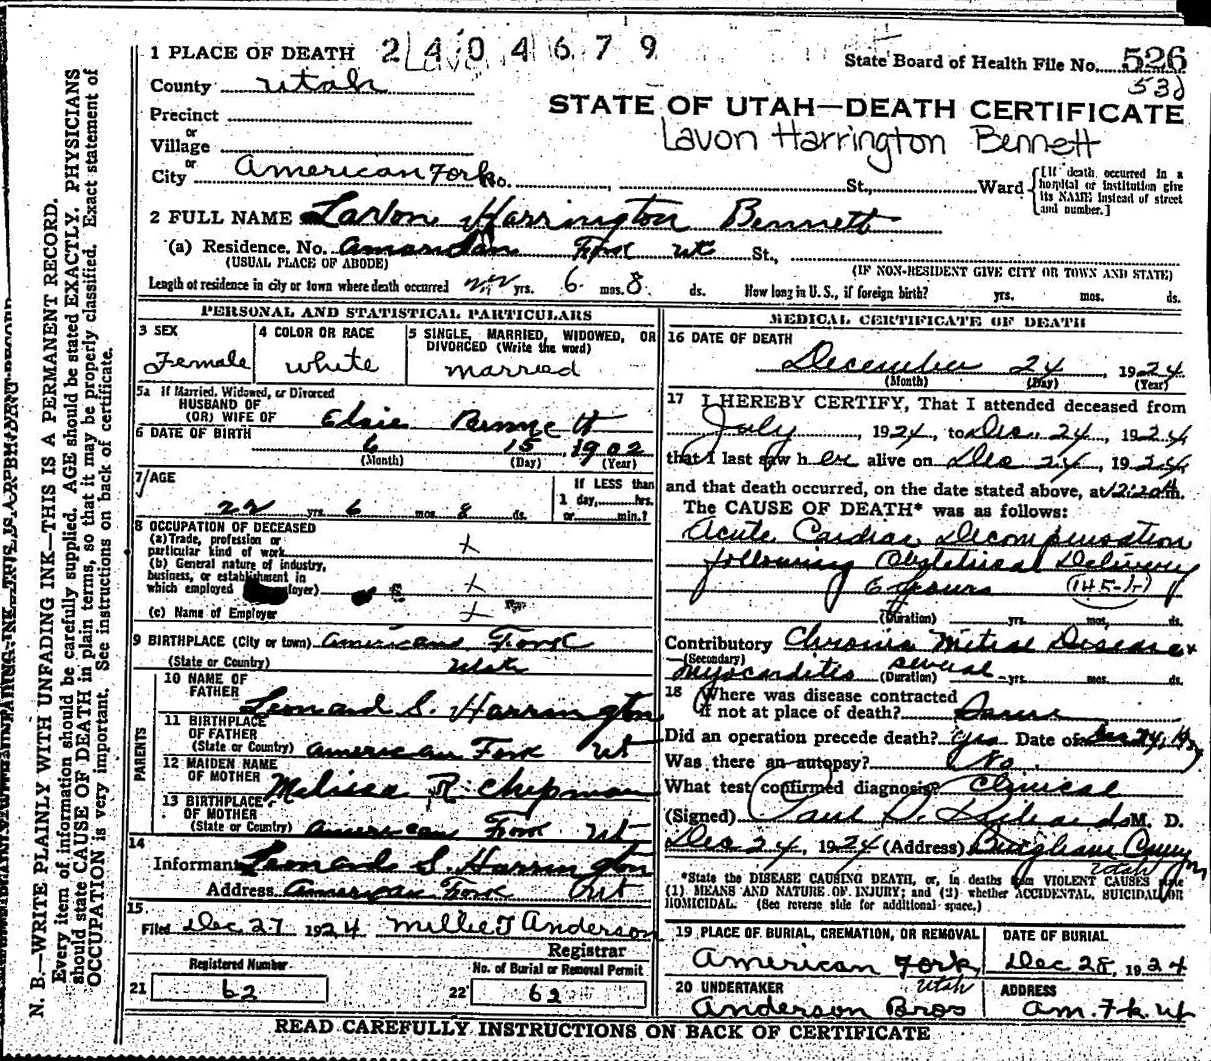 1 PLACE OF DEATH 2404679
State Board of Health File No. 526
530
County Utah
STATE OF UTAH—DEATH CERTIFICATE
Precinct
Lavon Harrington Bennett
or
Village
or
City American Fork No. St., Ward [If death occurred in a hospital or institution give its NAME instead of street and number.]
2 FULL NAME LaVon Harrington Bennett
(a) Residence. No. American Fork Ut St.,
(USUAL PLACE OF ABODE) (IF NON-RESIDENT GIVE CITY OR TOWN AND STATE)
Length of residence in city or town where death occurred 22 yrs. 6 mos. 8 ds. How long in U.S., if foreign birth? yrs. mos. ds.
PERSONAL AND STATISTICAL PARTICULARS
3 SEX
Female
4 COLOR OR RACE
White
5 SINGLE, MARRIED, WIDOWED, OR DIVORCED (Write the word)
Married
5a If Married, Widowed, or Divorced
HUSBAND OF
(OR) WIFE OF Elsie Bennett
6 DATE OF BIRTH 6 15 1902
(Month) (Day) (Year)
7 AGE
22 yrs. 6 mos. 8 ds.
If LESS than
1 day, hrs.
or min.?
8 OCCUPATION OF DECEASED
(a) Trade, profession or
particular kind of work x
(b) General nature of industry,
business, or establishment in
which employed x
(c) Name of Employer x
9 BIRTHPLACE (City or town) American Fork
(State or Country) Utah
PARENTS
10 NAME OF
FATHER
Leonard S. Harrington
11 BIRTHPLACE
OF FATHER
(State or Country) American Fork Ut
12 MAIDEN NAME
OF MOTHER
Melissa R Chipman
13 BIRTHPLACE
OF MOTHER
(State or Country) American Fork Ut
14
Informant Leonard S. Harrington
Address American Fork Ut
15
Filed Dec 27 1924 Millie T Anderson
Registrar
Registered Number
21 62
No. of Burial or Removal Permit
22 62
MEDICAL CERTIFICATE OF DEATH
16 DATE OF DEATH
December 24, 1924
(Month) (Day) (Year)
17 I HEREBY CERTIFY, That I attended deceased from
July, 1924, to Dec. 24, 1924,
that I last saw her alive on Dec 24, 1924,
and that death occurred, on the date stated above, at 12:20 m.
The CAUSE OF DEATH* was as follows:
Acute Cardiac Decompensation
following Obstetrical Delivery
6 hours (145-b)
(Duration) yrs. mos. ds.
Contributory Chronic Mitral Disease &
(Secondary)
Myocarditis (Duration) several yrs. mos. ds.
18 Where was disease contracted
if not at place of death? Same
Did an operation precede death? Yes Date of Dec 24,
Was there an autopsy? No.
What test confirmed diagnosis? Clinical
(Signed) Paul S. Richards M. D.
Dec 24, 1924 (Address) Bingham Canyon
Utah
*State the DISEASE CAUSING DEATH, or, in deaths from VIOLENT CAUSES state
(1) MEANS AND NATURE OF INJURY; and (2) whether ACCIDENTAL, SUICIDAL OR
HOMICIDAL. (See reverse side for additional space.)
19 PLACE OF BURIAL, CREMATION, OR REMOVAL
American Fork
Utah
DATE OF BURIAL
Dec 28, 1924
20 UNDERTAKER
Anderson Bros
ADDRESS
Am. Fk. Ut
READ CAREFULLY INSTRUCTIONS ON BACK OF CERTIFICATE
N. B.—WRITE PLAINLY WITH UNFADING INK—THIS IS A PERMANENT RECORD.
Every item of information should be carefully supplied. AGE should be stated EXACTLY. PHYSICIANS
should state CAUSE OF DEATH in plain terms, so that it may be properly classified. Exact statement of
OCCUPATION is very important. See instructions on back of certificate.